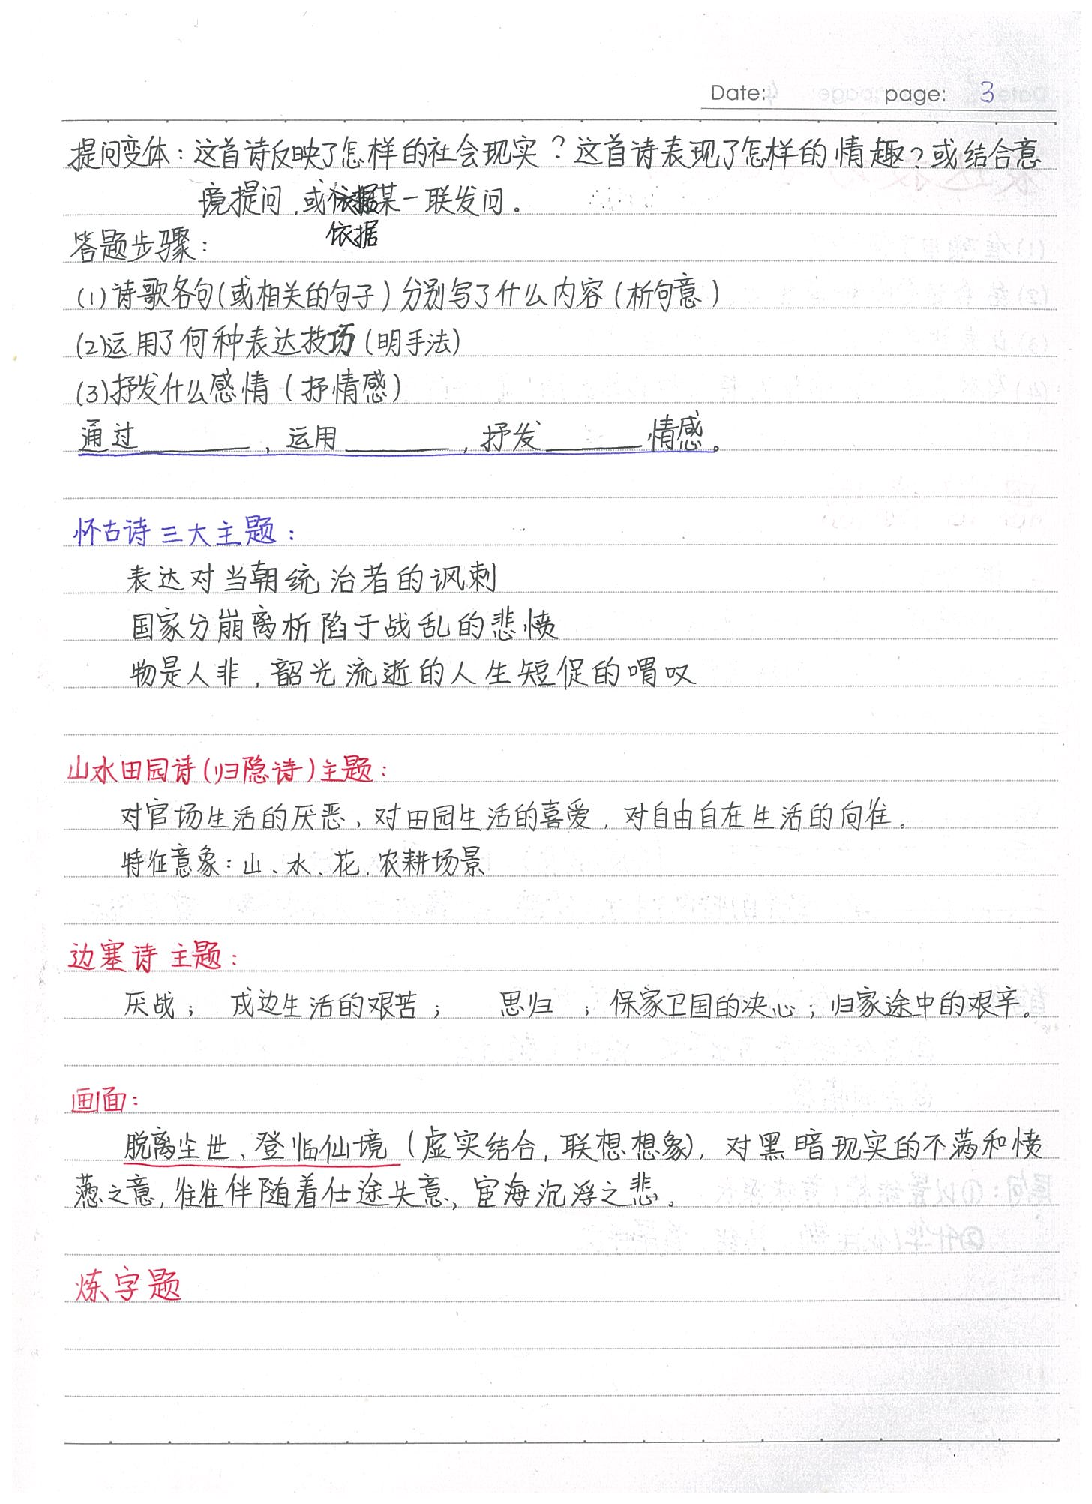 Date: page: 3
提问变体：这首诗反映了怎样的社会现实？这首诗表现了怎样的情趣？或结合意
境提问，或依据某一联发问。
依据
答题步骤：
(1)诗歌各句(或相关的句子)分别写了什么内容(析句意)
(2)运用了何种表达技巧(明手法)
(3)抒发什么感情(抒情感)
通过________，运用________，抒发________情感。
怀古诗三大主题：
表达对当朝统治者的讽刺
国家分崩离析陷于战乱的悲愤
物是人非，韶光流逝的人生短促的喟叹
山水田园诗(归隐诗)主题：
对官场生活的厌恶、对田园生活的喜爱，对自由自在生活的向往。
特征意象：山、水、花、农耕场景
边塞诗主题：
厌战； 戍边生活的艰苦； 思归 ；保家卫国的决心；归家途中的艰辛。
画面：
脱离尘世、登临仙境(虚实结合，联想想象)，对黑暗现实的不满和愤
懑之意，往往伴随着仕途失意、宦海沉浮之悲。
炼字题